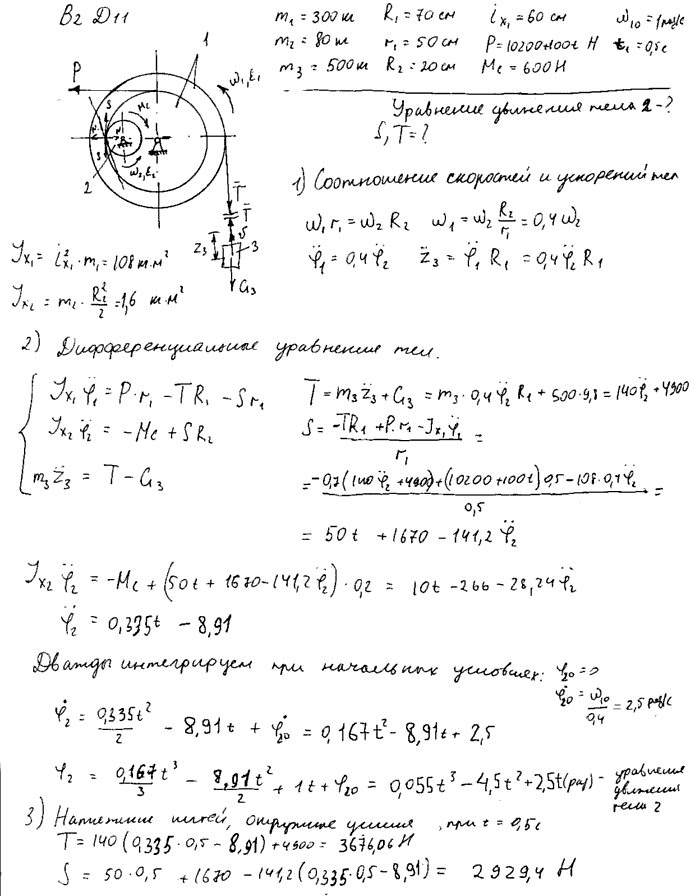 В2 D11
m₁ = 300 кг R₁ = 70 см i_x₁ = 60 см ω₁₀ = 1 рад/с
m₂ = 80 кг r₁ = 50 см P = 10200+100t H t₁ = 0,5 с
m₃ = 500 кг R₂ = 20 см M_c = 600 H
Уравнение движения тела 2 - ?
S, T = ?
1
P
ω₁, ε₁
S
M_c
N
N
S
2
ω₂, ε₂
T̄
T̄
v̄
Z₃
3
G₃
1) Соотношение скоростей и ускорений тел
ω₁ r₁ = ω₂ R₂ ω₁ = ω₂ R₂/r₁ = 0,4 ω₂
φ̈₁ = 0,4 φ̈₂ z̈₃ = φ̈₁ R₁ = 0,4 φ̈₂ R₁
J_x₁ = i²_x₁ · m₁ = 108 кг·м²
J_x₂ = m₂ · R₂²/2 = 1,6 кг·м²
2) Дифференциальные уравнения тел.
J_x₁ φ̈₁ = P·r₁ - TR₁ - Sr₁
J_x₂ φ̈₂ = -M_c + SR₂
m₃ z̈₃ = T - G₃
T = m₃ z̈₃ + G₃ = m₃ · 0,4 φ̈₂ R₁ + 500·9,8 = 140 φ̈₂ + 4900
S = (-TR₁ + P·r₁ - J_x₁ φ̈₁)/r₁ =
= (-0,7(140 φ̈₂ + 4900) + (10200+100t) 0,5 - 108·0,4 φ̈₂)/0,5 =
= 50t + 1670 - 141,2 φ̈₂
J_x₂ φ̈₂ = -M_c + (50t + 1670 - 141,2 φ̈₂) · 0,2 = 10t - 266 - 28,24 φ̈₂
φ̈₂ = 0,335t - 8,91
Дважды интегрируем при начальных условиях: φ₂₀ = 0
φ̇₂₀ = ω₁₀/0,4 = 2,5 рад/с
φ̇₂ = 0,335t²/2 - 8,91t + φ̇₂₀ = 0,167t² - 8,91t + 2,5
φ₂ = 0,167t³/3 - 8,91t²/2 + 1t + φ₂₀ = 0,055t³ - 4,5t² + 2,5t (рад) - уравнение
движения
тела 2
3) Натяжение нитей, окружные усилия, при t = 0,5с
T = 140 (0,335·0,5 - 8,91) + 4900 = 3676,06 H
S = 50·0,5 + 1670 - 141,2 (0,335·0,5 - 8,91) = 2929,4 H